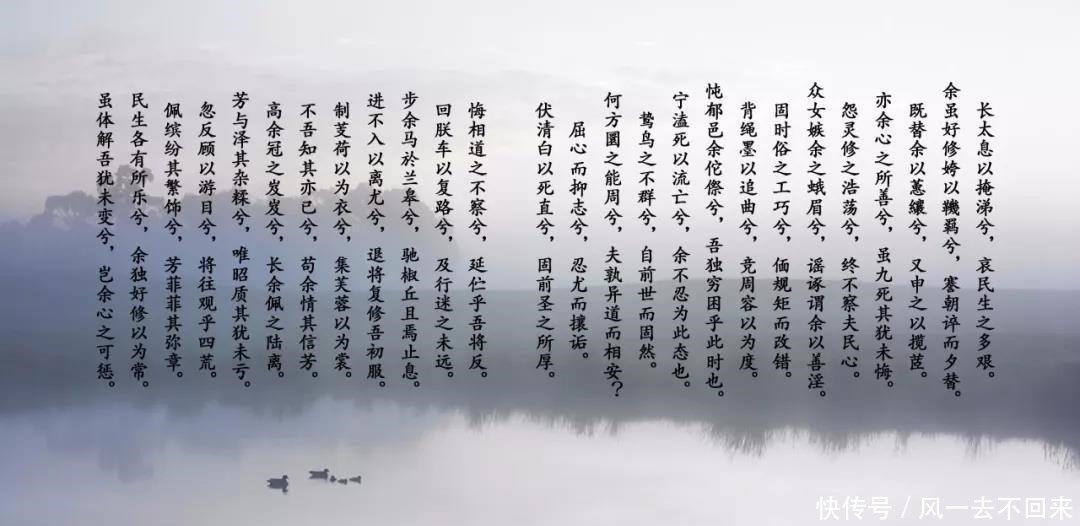 长太息以掩涕兮，哀民生之多艰。
余虽好修姱以鞿羁兮，謇朝谇而夕替。
既替余以蕙纕兮，又申之以揽茝。
亦余心之所善兮，虽九死其犹未悔。
怨灵修之浩荡兮，终不察夫民心。
众女嫉余之蛾眉兮，谣诼谓余以善淫。
固时俗之工巧兮，偭规矩而改错。
背绳墨以追曲兮，竞周容以为度。
忳郁邑余侘傺兮，吾独穷困乎此时也。
宁溘死以流亡兮，余不忍为此态也。
鸷鸟之不群兮，自前世而固然。
何方圜之能周兮，夫孰异道而相安？
屈心而抑志兮，忍尤而攘诟。
伏清白以死直兮，固前圣之所厚。
悔相道之不察兮，延伫乎吾将反。
回朕车以复路兮，及行迷之未远。
步余马於兰皋兮，驰椒丘且焉止息。
进不入以离尤兮，退将复修吾初服。
制芰荷以为衣兮，集芙蓉以为裳。
不吾知其亦已兮，苟余情其信芳。
高余冠之岌岌兮，长余佩之陆离。
芳与泽其杂糅兮，唯昭质其犹未亏。
忽反顾以游目兮，将往观乎四荒。
佩缤纷其繁饰兮，芳菲菲其弥章。
民生各有所乐兮，余独好修以为常。
虽体解吾犹未变兮，岂余心之可惩。
快传号 / 风一去不回来